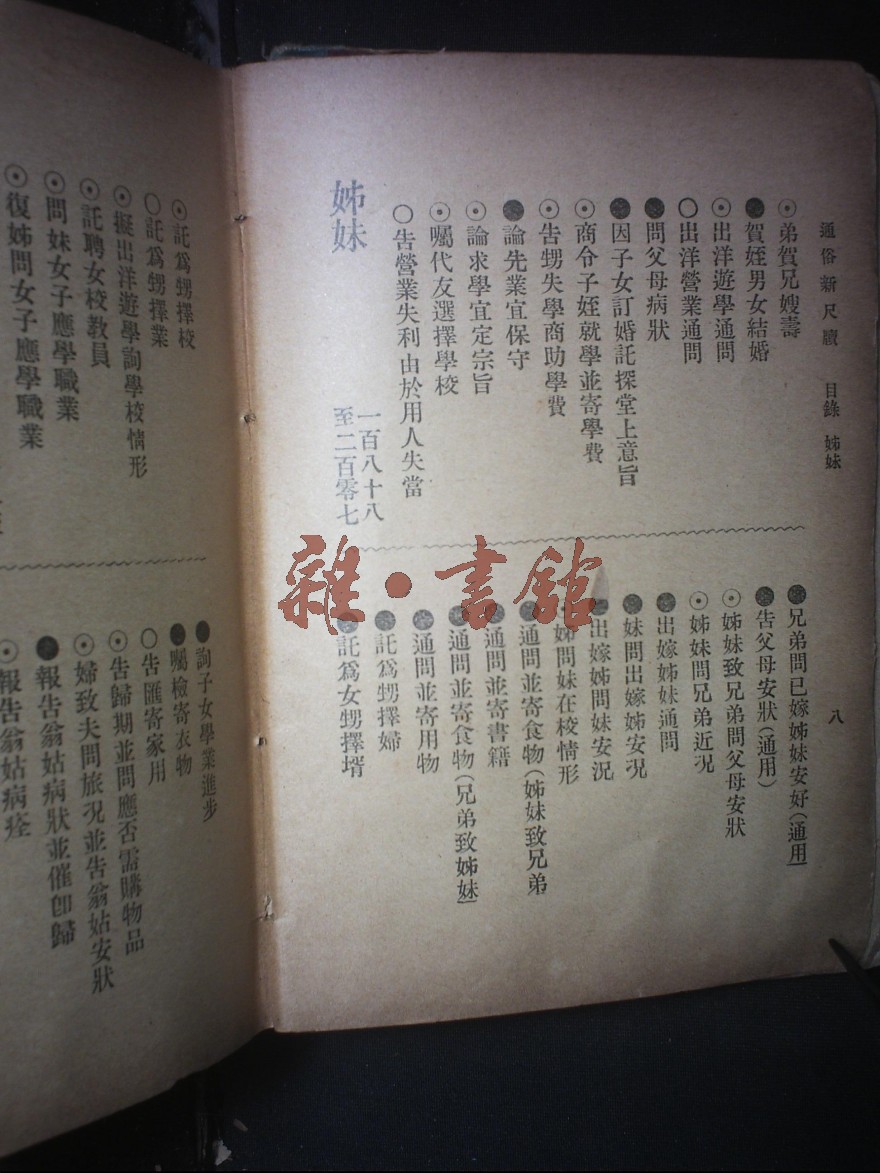 通俗新尺牘 目錄 姊妹 八
⊙弟賀兄嫂壽
●賀姪男女結婚
⊙出洋遊學通問
○出洋營業通問
●問父母病狀
●因子女訂婚託探堂上意旨
⊙商令子姪就學並寄學費
⊙告甥失學商助學費
●論先業宜保守
⊙論求學宜定宗旨
⊙囑代友選擇學校
○告營業失利由於用人失當
姊妹 一百八十八至二百零七
●兄弟問已嫁姊妹安好(通用)
●告父母安狀(通用)
⊙姊妹致兄弟問父母安狀
⊙姊妹問兄弟近況
●出嫁姊妹通問
●妹問出嫁姊安況
出嫁姊問妹安況
姊問妹在校情形
●通問並寄食物(姊妹致兄弟
●通問並寄書籍
●通問並寄食物(兄弟致姊妹)
●通問並寄用物
●託爲甥擇婦
●託爲女甥擇壻
⊙託爲甥擇校
○託爲甥擇業
⊙擬出洋遊學詢學校情形
⊙託聘女校教員
⊙問妹女子應學職業
⊙復姊問女子應學職業
●詢子女學業進步
●囑檢寄衣物
○告匯寄家用
⊙告歸期並問應否需購物品
⊙婦致夫問旅況並告翁姑安狀
●報告翁姑病狀並催卽歸
⊙報告翁姑病痊
雜·書館